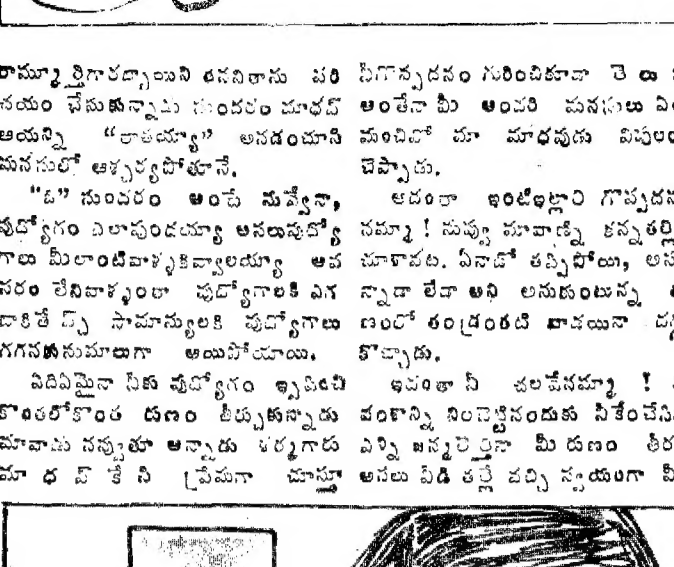 రామ్మూర్తిగారబ్బాయిని తనని తాను పరి
చయం చేసుకున్నాడు సుందరం మాధవ్
ఆయన్ని "రాతయ్యా" అనడంచూసి
మనసులో ఆశ్చర్యపోతూనే.
"ఓ" సుందరం అంటే నువ్వేనా,
వుద్యోగం ఎలావుందయ్యా అసలువుద్యో
గాలు మీలాంటివాళ్ళకివ్వాలయ్యా అవ
సరం లేనివాళ్ళంతా వుద్యోగాలకి ఎగ
బాకితే సామాన్యులకి వుద్యోగాలు
గగనకుసుమాలుగా అయిపోయాయి.
ఏదిఏమైనా నీకు వుద్యోగం ఇప్పించి
కొంతలోకొంత ఋణం తీర్చుకున్నాడు
మావాడు నవ్వుతూ అన్నాడు శర్మగారు
మా ధ వ్ కే సి ప్రేమగా చూస్తూ
నీగొప్పదనం గురించికూడా తె లు
అంతేనా మీ అందరి మనసులు
మంచివో మా మాధవుడు
చెప్పాడు.
అదంతా ఇంటిఇల్లాలి గొప్పదన
నమ్మా ! నువ్వు మావాణ్ని కన్నతల్లి
చూశావట. ఏనాడో తప్పిపోయి,
న్నాడా లేడా అని అనుకుంటున్న
ణంలో తండ్రంతటి వాడయినా
కొచ్చాడు.
ఇదంతా నీ చలవేనమ్మా !
వంశాన్ని నిలబెట్టినందుకు నీకేంచేసి
ఎన్ని జన్మలెత్తినా మీ ఋణం తీర
అసలు వీడి తల్లే వచ్చి స్వయంగా